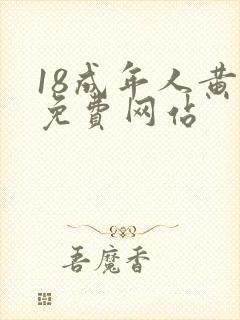 18成年人黄
免費网佔
吾魔香